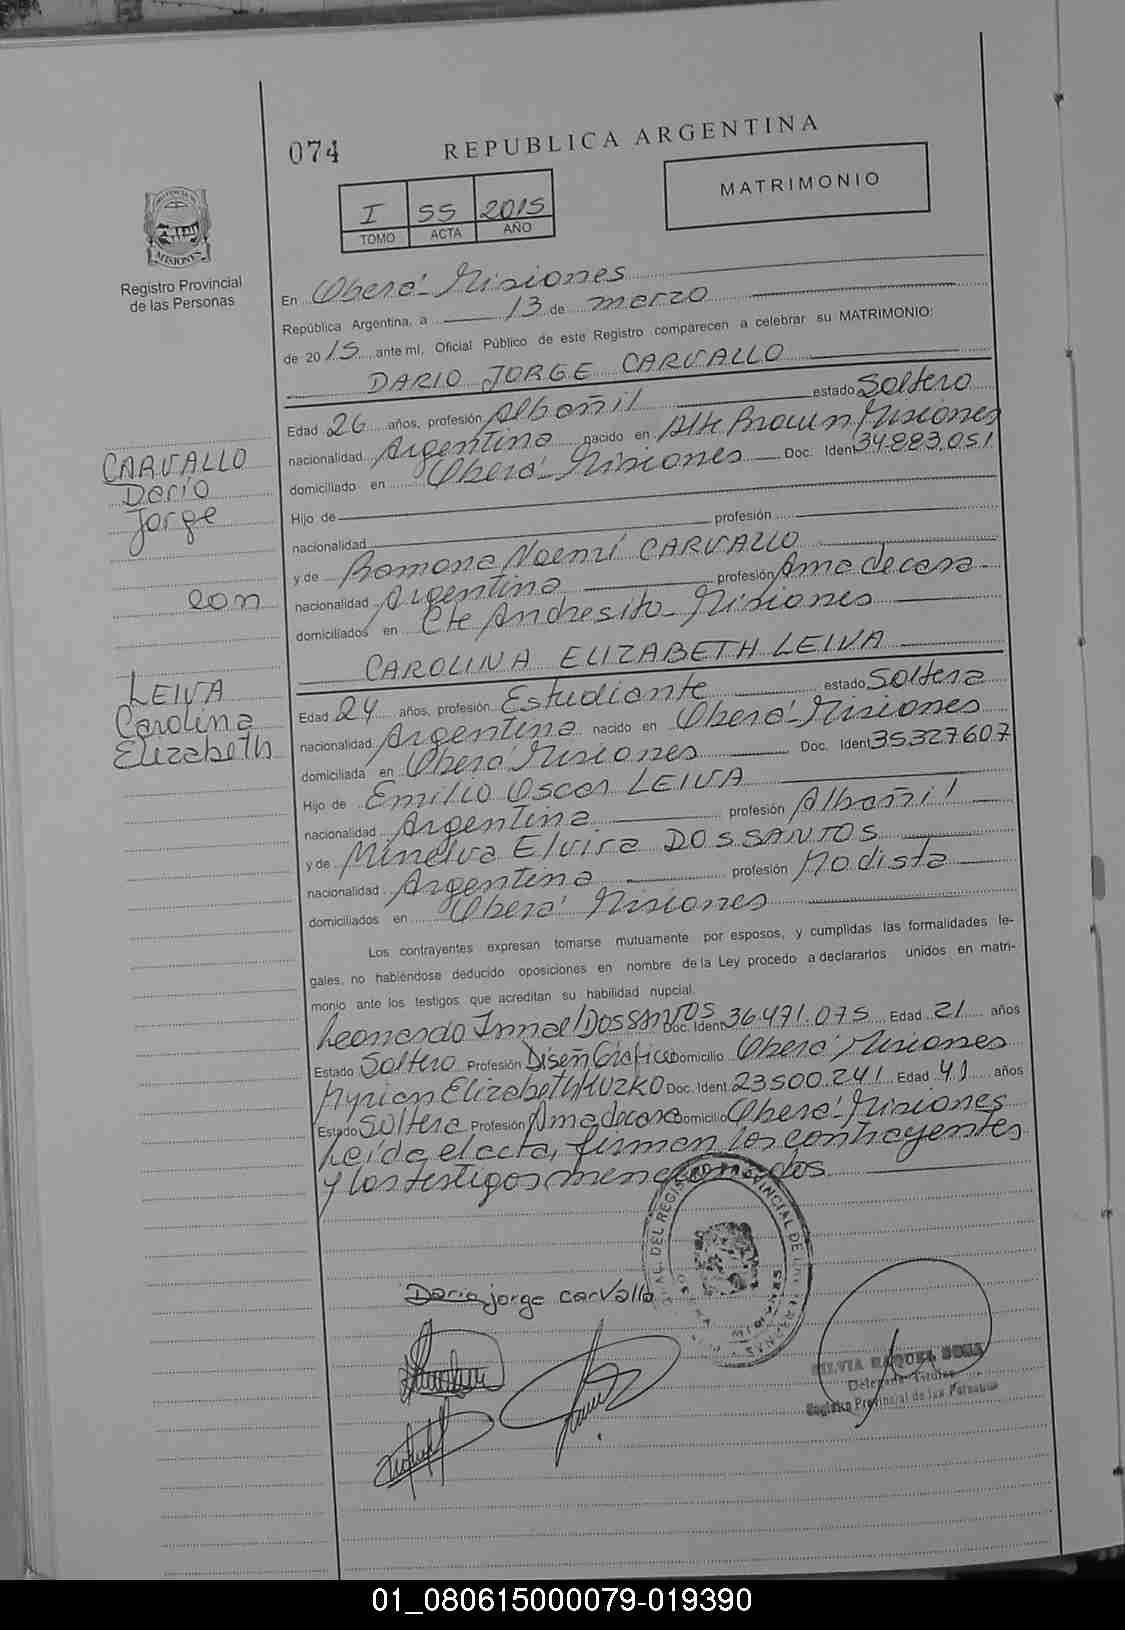 074
REPUBLICA ARGENTINA
MATRIMONIO
I 55 2015
TOMO ACTA AÑO
MISIONES
Registro Provincial
de las Personas
En Oberá - Misiones
República Argentina, a 13 de marzo
de 2015 ante mí, Oficial Público de este Registro comparecen a celebrar su MATRIMONIO:
DARIO JORGE CARVALLO
Edad 26 años, profesión Albañil estado Soltero
nacionalidad Argentina nacido en Alte Brown Misiones
domiciliado en Oberá - Misiones Doc. Ident 34.883.051
Hijo de
nacionalidad profesión
y de Ramona Noemí CARVALLO
nacionalidad Argentina profesión Ama de casa
domiciliados en Cte Andresito - Misiones
CARVALLO
Darío
Jorge
con
LEIVA
Carolina
Elizabeth
CAROLINA ELIZABETH LEIVA
Edad 24 años, profesión Estudiante estado Soltera
nacionalidad Argentina nacido en Oberá - Misiones
domiciliada en Oberá Misiones Doc. Ident 35327607
Hijo de Emilio Oscar LEIVA
nacionalidad Argentina profesión Albañil
y de Minelva Elvira DOSSANTOS
nacionalidad Argentina profesión Modista
domiciliados en Oberá Misiones
Los contrayentes expresan tomarse mutuamente por esposos, y cumplidas las formalidades le-
gales, no habiéndose deducido oposiciones en nombre de la Ley procedo a declararlos unidos en matri-
monio ante los testigos que acreditan su habilidad nupcial.
Leonardo Ismael DOSSANTOS Doc. Ident 36.471.075 Edad 21 años
Estado Soltero Profesión Disen Gráfico Domicilio Oberá Misiones
Myrian Elizabeth KUZKO Doc. Ident 23500.241 Edad 41 años
Estado Soltera Profesión Ama de casa Domicilio Oberá - Misiones
Leída el acta, firman los contrayentes
y los testigos mencionados
Dario jorge carvallo
SILVIA RAQUEL
Delegada Titular
Registro Provincial de las Personas
01_080615000079-019390